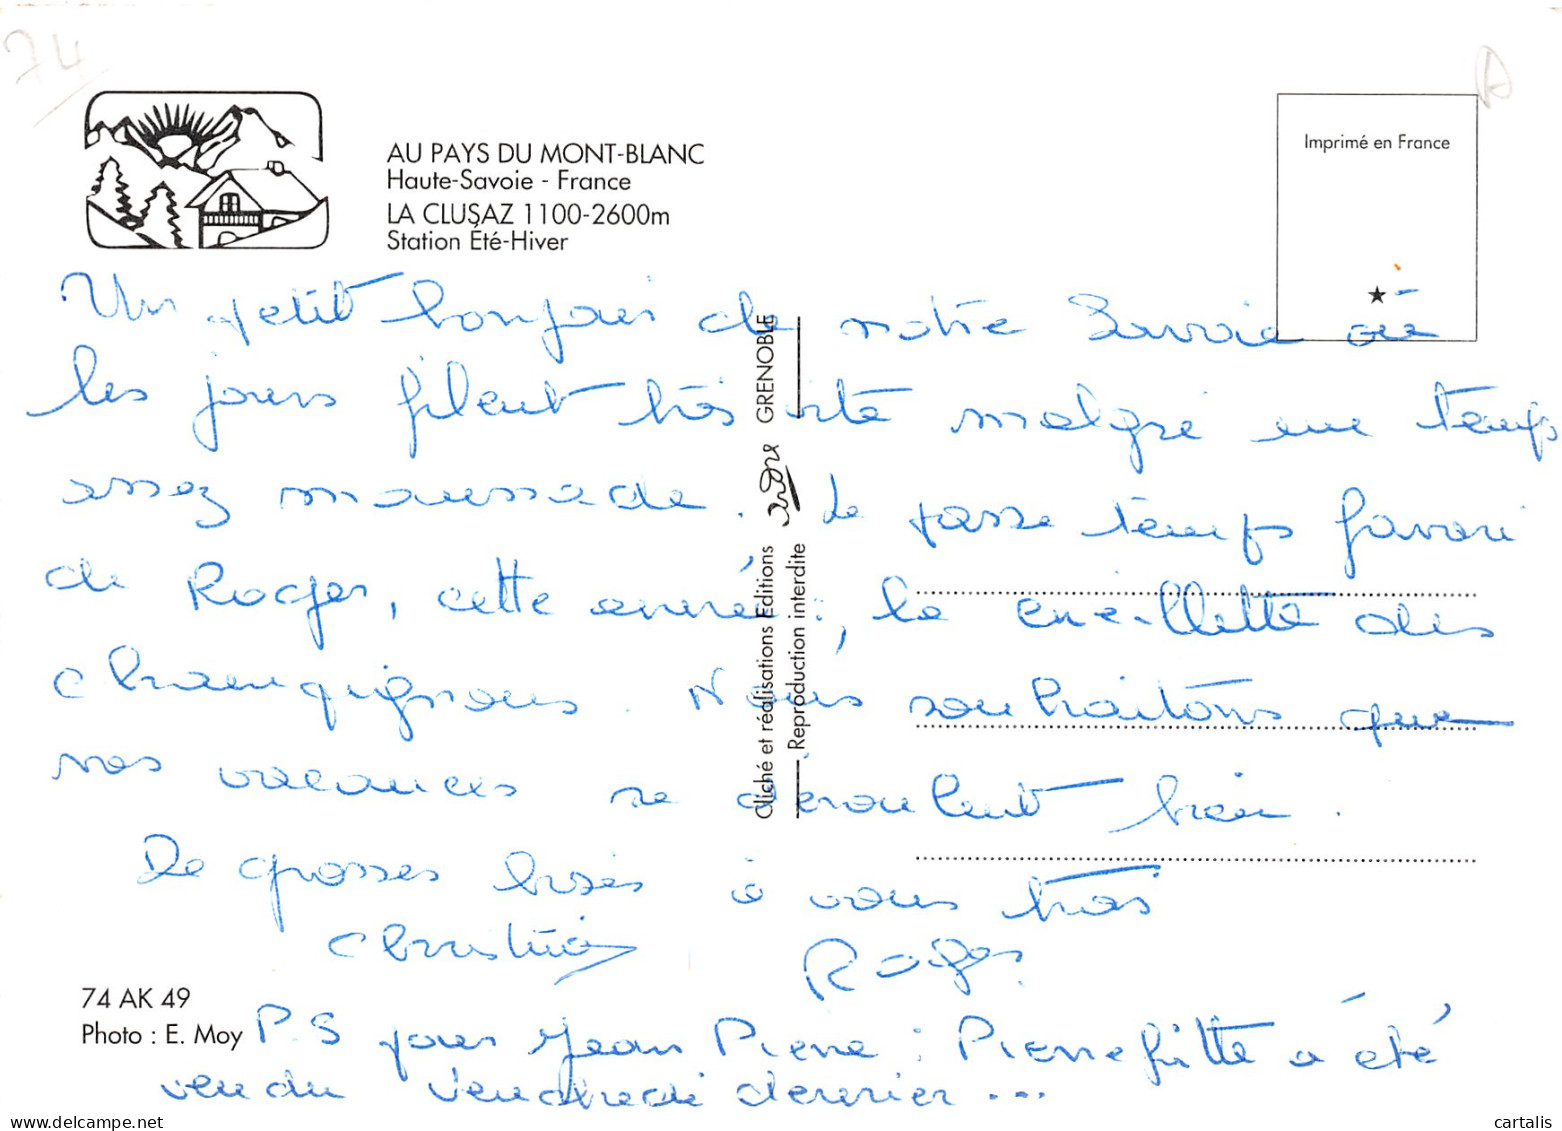 74
AU PAYS DU MONT-BLANC
Haute-Savoie - France
LA CLUSAZ 1100-2600m
Station Été-Hiver
Imprimé en France
Un petit bonjour de notre Savoie où
les jours filent très vite malgré un temps
assez maussade. Le passe temps favori
de Roger, cette année : la cueillette des
champignons. Nous souhaitons que
vos vacances se déroulent bien.
De grosses bises à vous trois
Christiane Roger
Cliché et réalisations Editions André GRENOBLE
Reproduction interdite
74 AK 49
Photo : E. Moy
P.S pour Jean Pierre : Pierrefitte a été
vendu vendredi dernier ...
cartalis